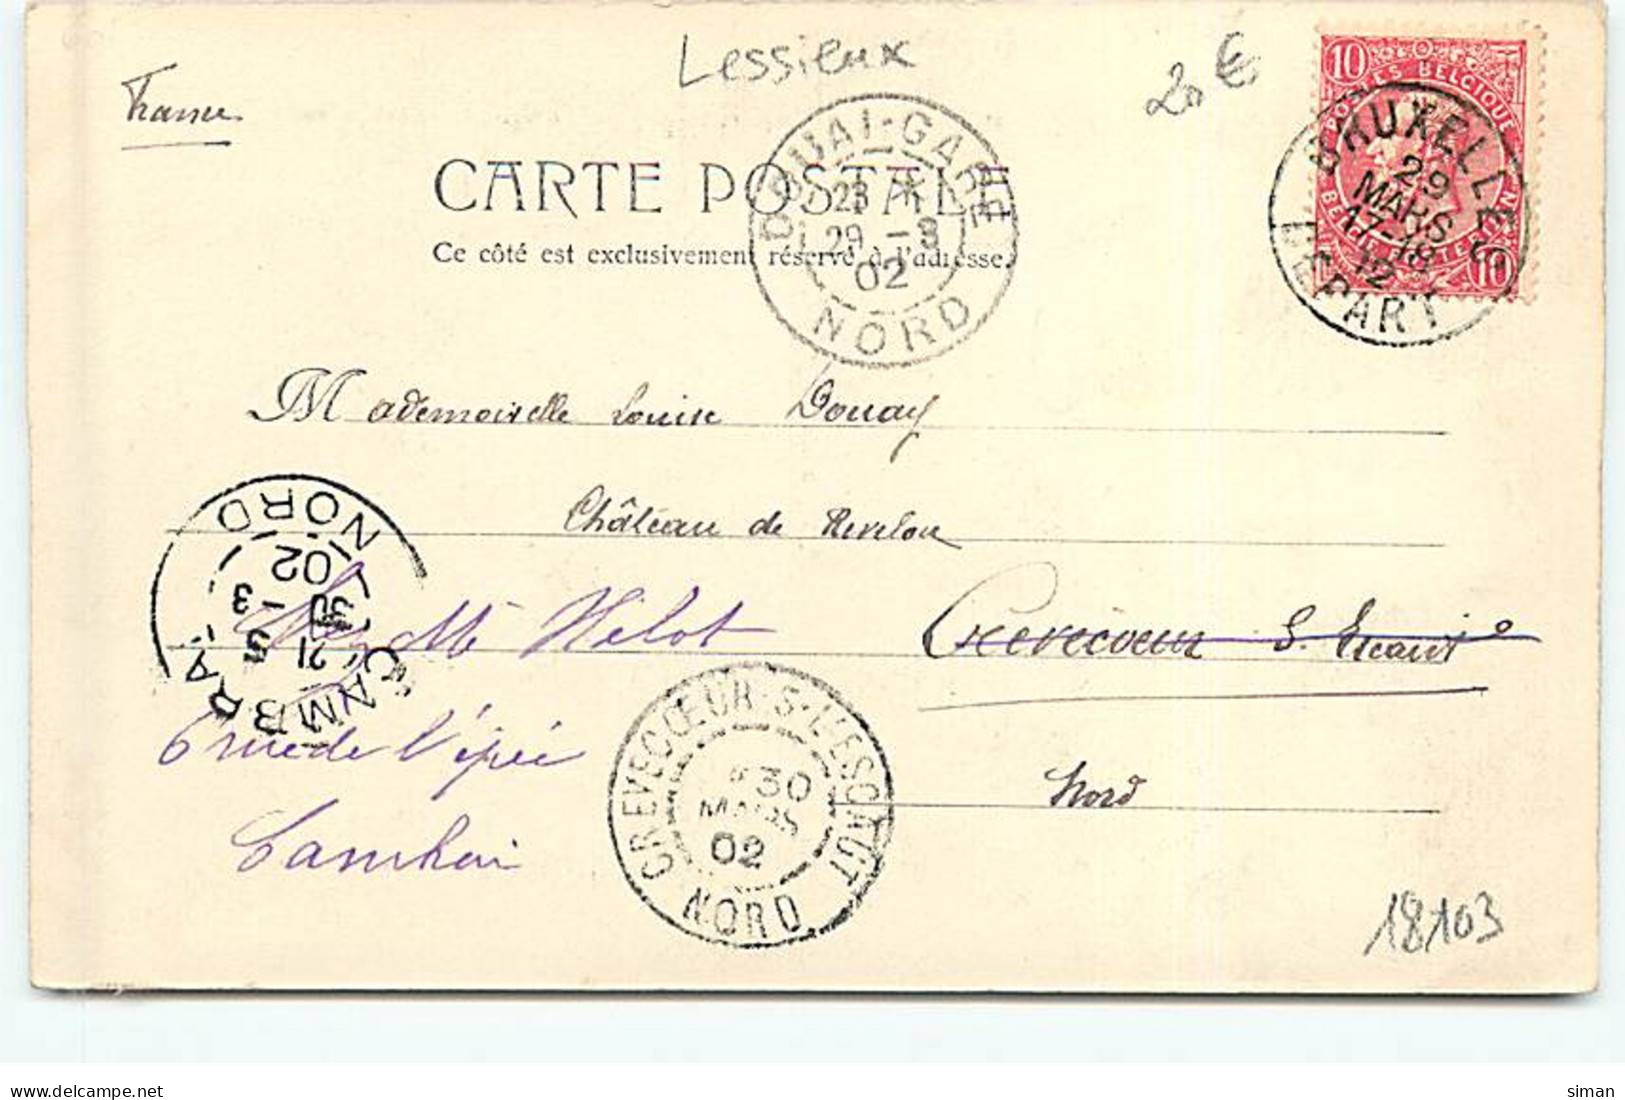 Lessieux
20 €
France
10 10
POSTES BELGIQUE
BRUXELLES
29
MARS
17-18
12
DEPART
CARTE POSTALE
Ce côté est exclusivement réservé à l'adresse.
DOUAI-GARE
29 -3
02
NORD
Mademoiselle Louise Douay
Château de Revelon
Crèvecoeur S. Escaut
Nord
Melle Helot
6 rue de l'épée
Cambrai
CAMBRAI
21
30
-3
02
NORD
CREVECŒUR-S-L'ESCAUT
30
MARS
02
NORD
18103
delcampe.net
siman